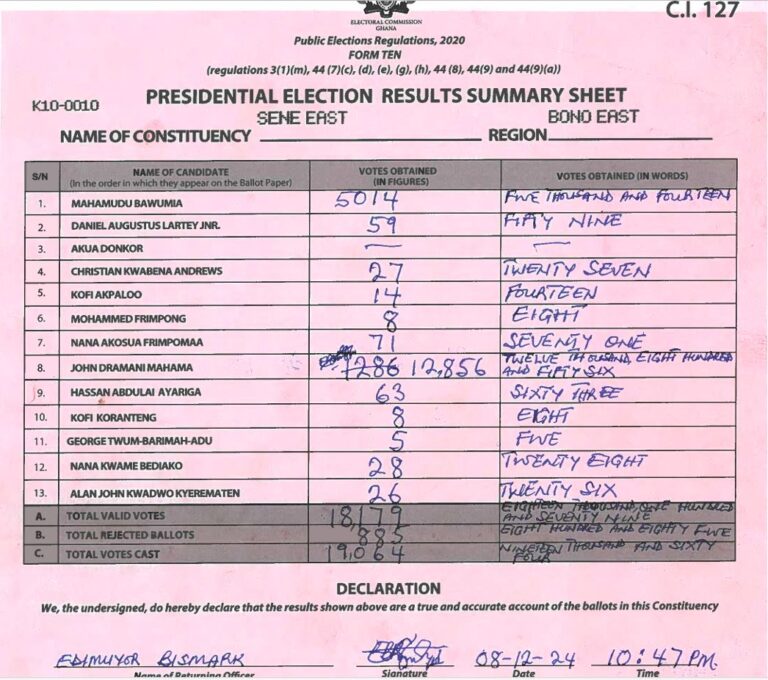 C.I. 127
ELECTORAL COMMISSION
GHANA
Public Elections Regulations, 2020
FORM TEN
(regulations 3(1)(m), 44 (7)(c), (d), (e), (g), (h), 44 (8), 44(9) and 44(9)(a))
K10-0010
PRESIDENTIAL ELECTION RESULTS SUMMARY SHEET
SENE EAST BONO EAST
NAME OF CONSTITUENCY REGION
S/N NAME OF CANDIDATE (In the order in which they appear on the Ballot Paper) VOTES OBTAINED (IN FIGURES) VOTES OBTAINED (IN WORDS)
1. MAHAMUDU BAWUMIA 5014 FIVE THOUSAND AND FOURTEEN
2. DANIEL AUGUSTUS LARTEY JNR. 59 FIFTY NINE
3. AKUA DONKOR — —
4. CHRISTIAN KWABENA ANDREWS 27 TWENTY SEVEN
5. KOFI AKPALOO 14 FOURTEEN
6. MOHAMMED FRIMPONG 8 EIGHT
7. NANA AKOSUA FRIMPOMAA 71 SEVENTY ONE
8. JOHN DRAMANI MAHAMA 12,856 TWELVE THOUSAND, EIGHT HUNDRED AND FIFTY SIX
9. HASSAN ABDULAI AYARIGA 63 SIXTY THREE
10. KOFI KORANTENG 8 EIGHT
11. GEORGE TWUM-BARIMAH-ADU 5 FIVE
12. NANA KWAME BEDIAKO 28 TWENTY EIGHT
13. ALAN JOHN KWADWO KYEREMATEN 26 TWENTY SIX
A. TOTAL VALID VOTES 18,179 EIGHTEEN THOUSAND, ONE HUNDRED AND SEVENTY NINE
B. TOTAL REJECTED BALLOTS 885 EIGHT HUNDRED AND EIGHTY FIVE
C. TOTAL VOTES CAST 19,064 NINETEEN THOUSAND AND SIXTY FOUR
DECLARATION
We, the undersigned, do hereby declare that the results shown above are a true and accurate account of the ballots in this Constituency
EDIMUYOR BISMARK 08-12-24 10:47PM.
Name of Returning Officer Signature Date Time